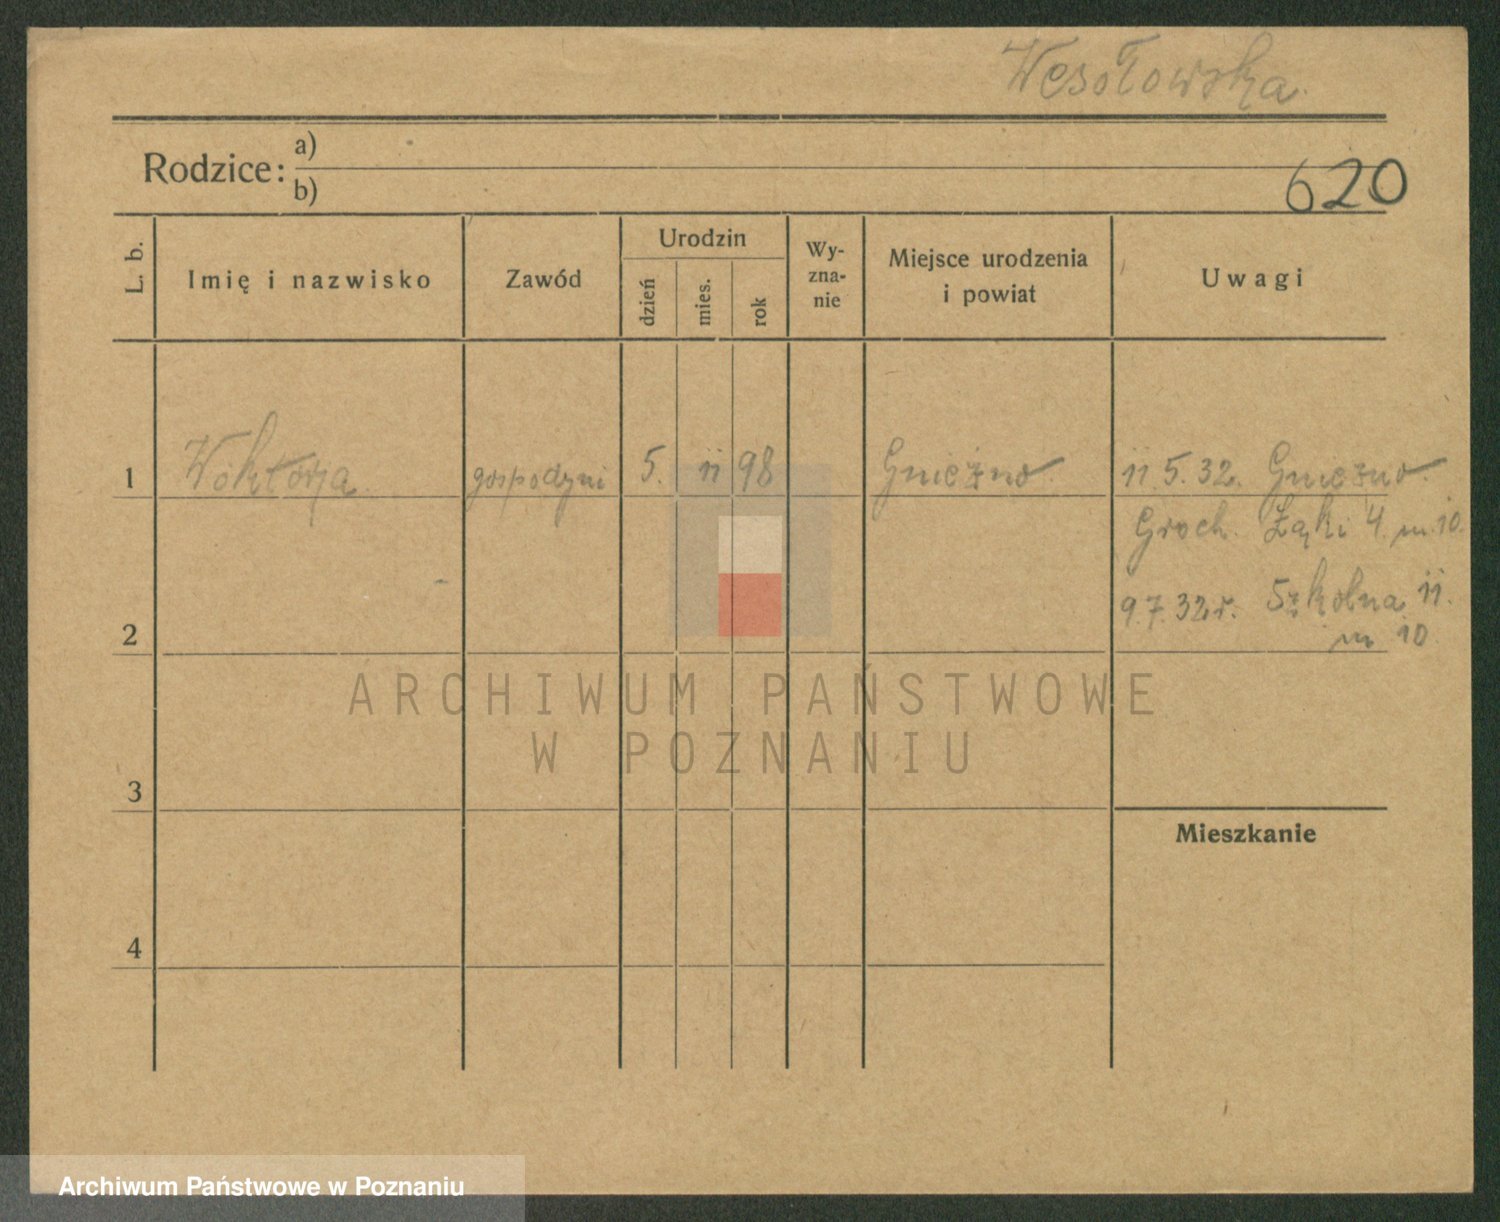 Wesołowska.
Rodzice: a)
b)
620
L. b.
Imię i nazwisko
Zawód
Urodzin
dzień
mies.
rok
Wy-
zna-
nie
Miejsce urodzenia
i powiat
Uwagi
1 Wiktorja gospodyni 5. 11 98 Gniezno 11.5.32. Gniezno
Groch. Łąki 4. m. 10.
9.7.32r. Szkolna 11.
m 10.
2
3
Mieszkanie
4
ARCHIWUM PAŃSTWOWE
W POZNANIU
Archiwum Państwowe w Poznaniu